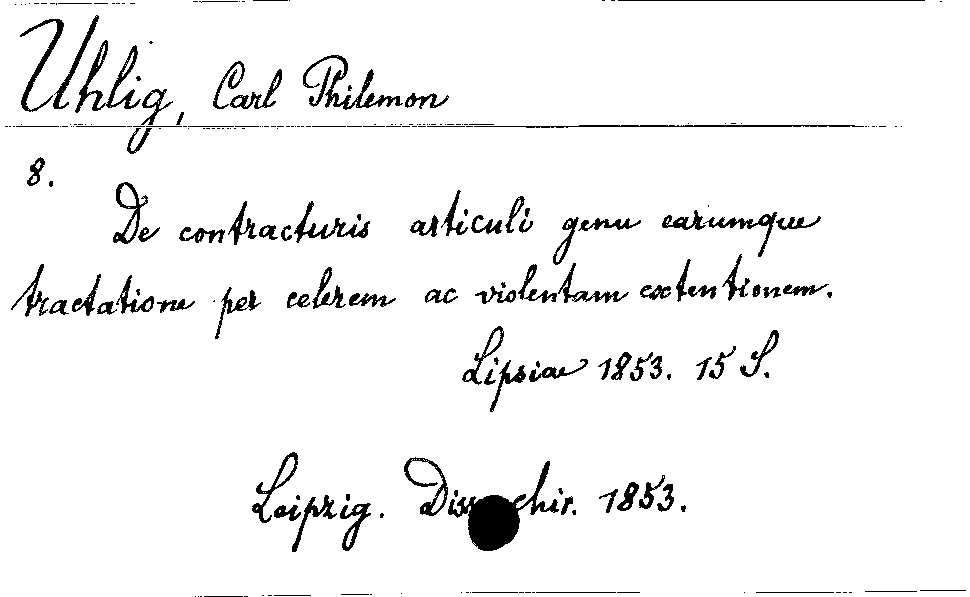 Uhlig, Carl Philemon
8.
De contracturis articuli genu earumque
tractatione per celerem ac violentam extentionem.
Lipsiae 1853. 15 S.
Leipzig. Diss. chir. 1853.